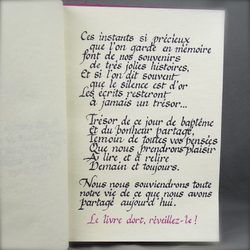 Ces instants si précieux
que l'on garde en mémoire
font de nos souvenirs
de très jolies histoires,
Et si l'on dit souvent
que le silence est d'or
Les écrits resteront
à jamais un trésor...
Trésor de ce jour de baptême
Et du bonheur partagé,
Témoin de toutes vos pensées
Que nous prendrons plaisir
A lire, et à relire
Demain et toujours.
Nous nous souviendrons toute
notre vie de ce que nous avons
partagé aujourd'hui.
Le livre dort, réveillez-le !